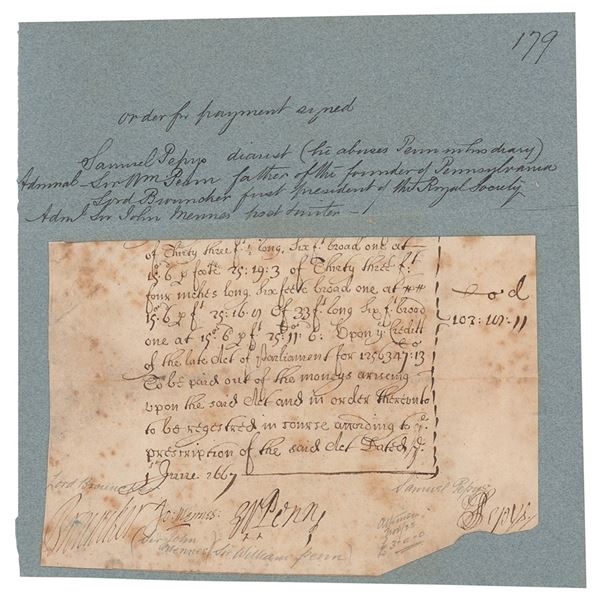 179
order for payment signed
Samuel Pepys diarist (he abuses Penn in his diary)
Admiral Sir Wm Penn father of the founder of Pennsylvania
Lord Brouncker first president of the Royal Society
Adml Sir John Mennes poet
of Thirty three ft long, six ft broad one at
15s 6 p foote 25:19:3 of Thirty three ft
four inches long six foote broad one at
15s:6 p ft 25:16: of 33 ft long six ft broad
one at 15s:6 p ft 25:11:6: Upon ye Creditt
of the late Act of Parliament for 1256347:13
To be paid out of the moneys arising
upon the said Act and in order thereunto
to be regestred in course according to ye
prescription of the said Act Dated ye
June 1667
d
103: :11
Lord Brouncker
Samuel Pepys
Brouncker Jo: Mennes: W Penn
SPepys
(Sir John Mennes) (Sir William Penn)